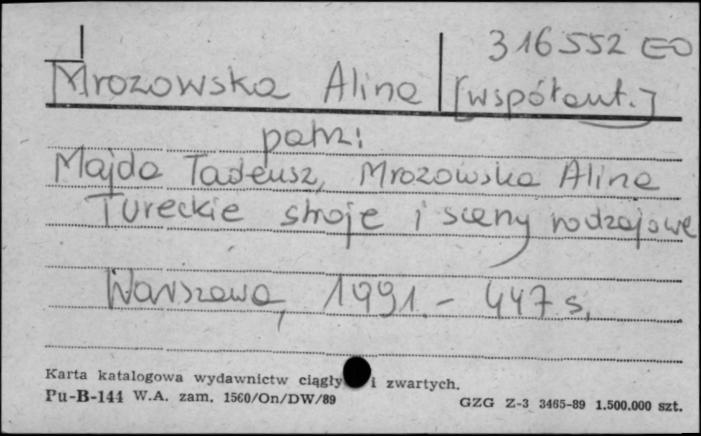 316552 EO
Mrozowska Alina [współaut.]
patrz:
Majda Tadeusz, Mrozowska Alina
Tureckie stroje i sceny rodzajowe
Warszawa, 1991. - 447 s.
Karta katalogowa wydawnictw ciągły i zwartych.
Pu-B-144 W.A. zam. 1560/On/DW/89
GZG Z-3 3465-89 1.500.000 szt.